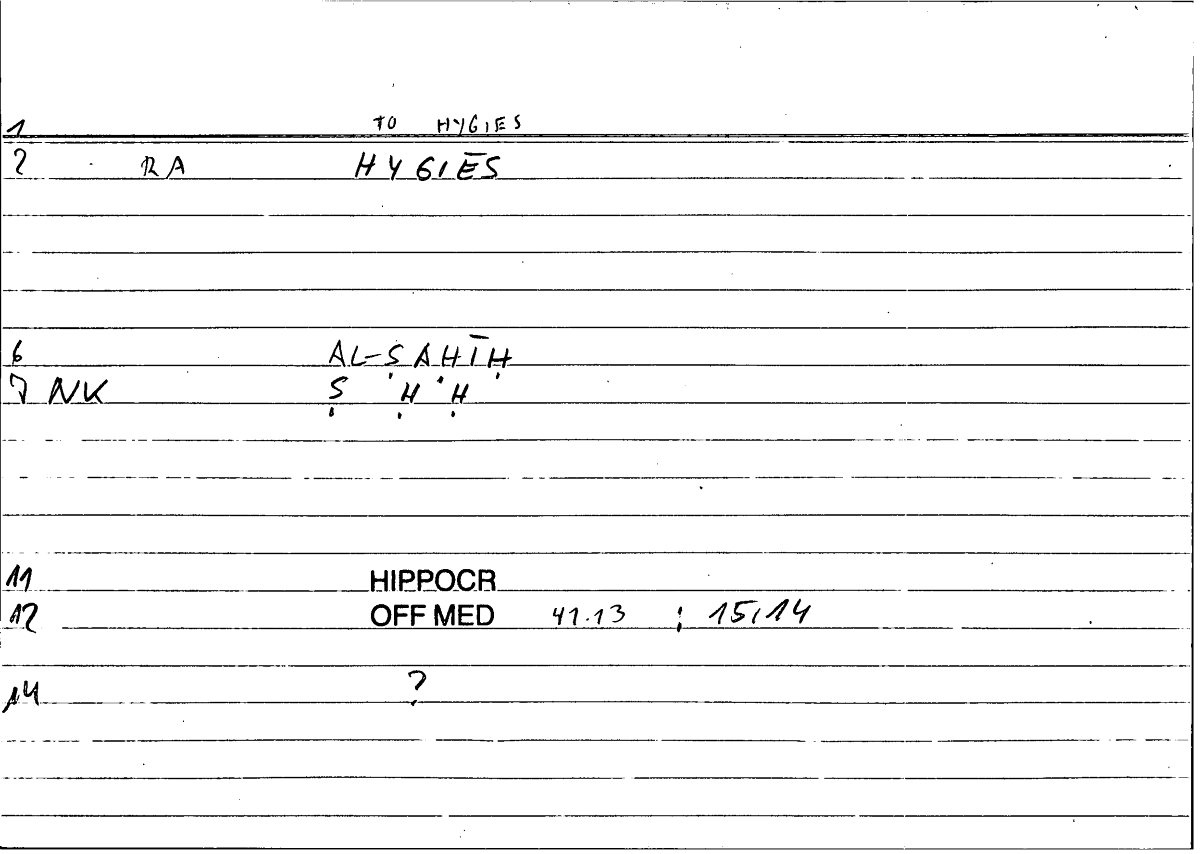 1 TO HYGIES
2 RA HYGIĒS
6 AL-ṢAḤĪḤ
7 NK Ṣ Ḥ Ḥ
11 HIPPOCR
12 OFF MED 41.13 ; 15,14
14 ?